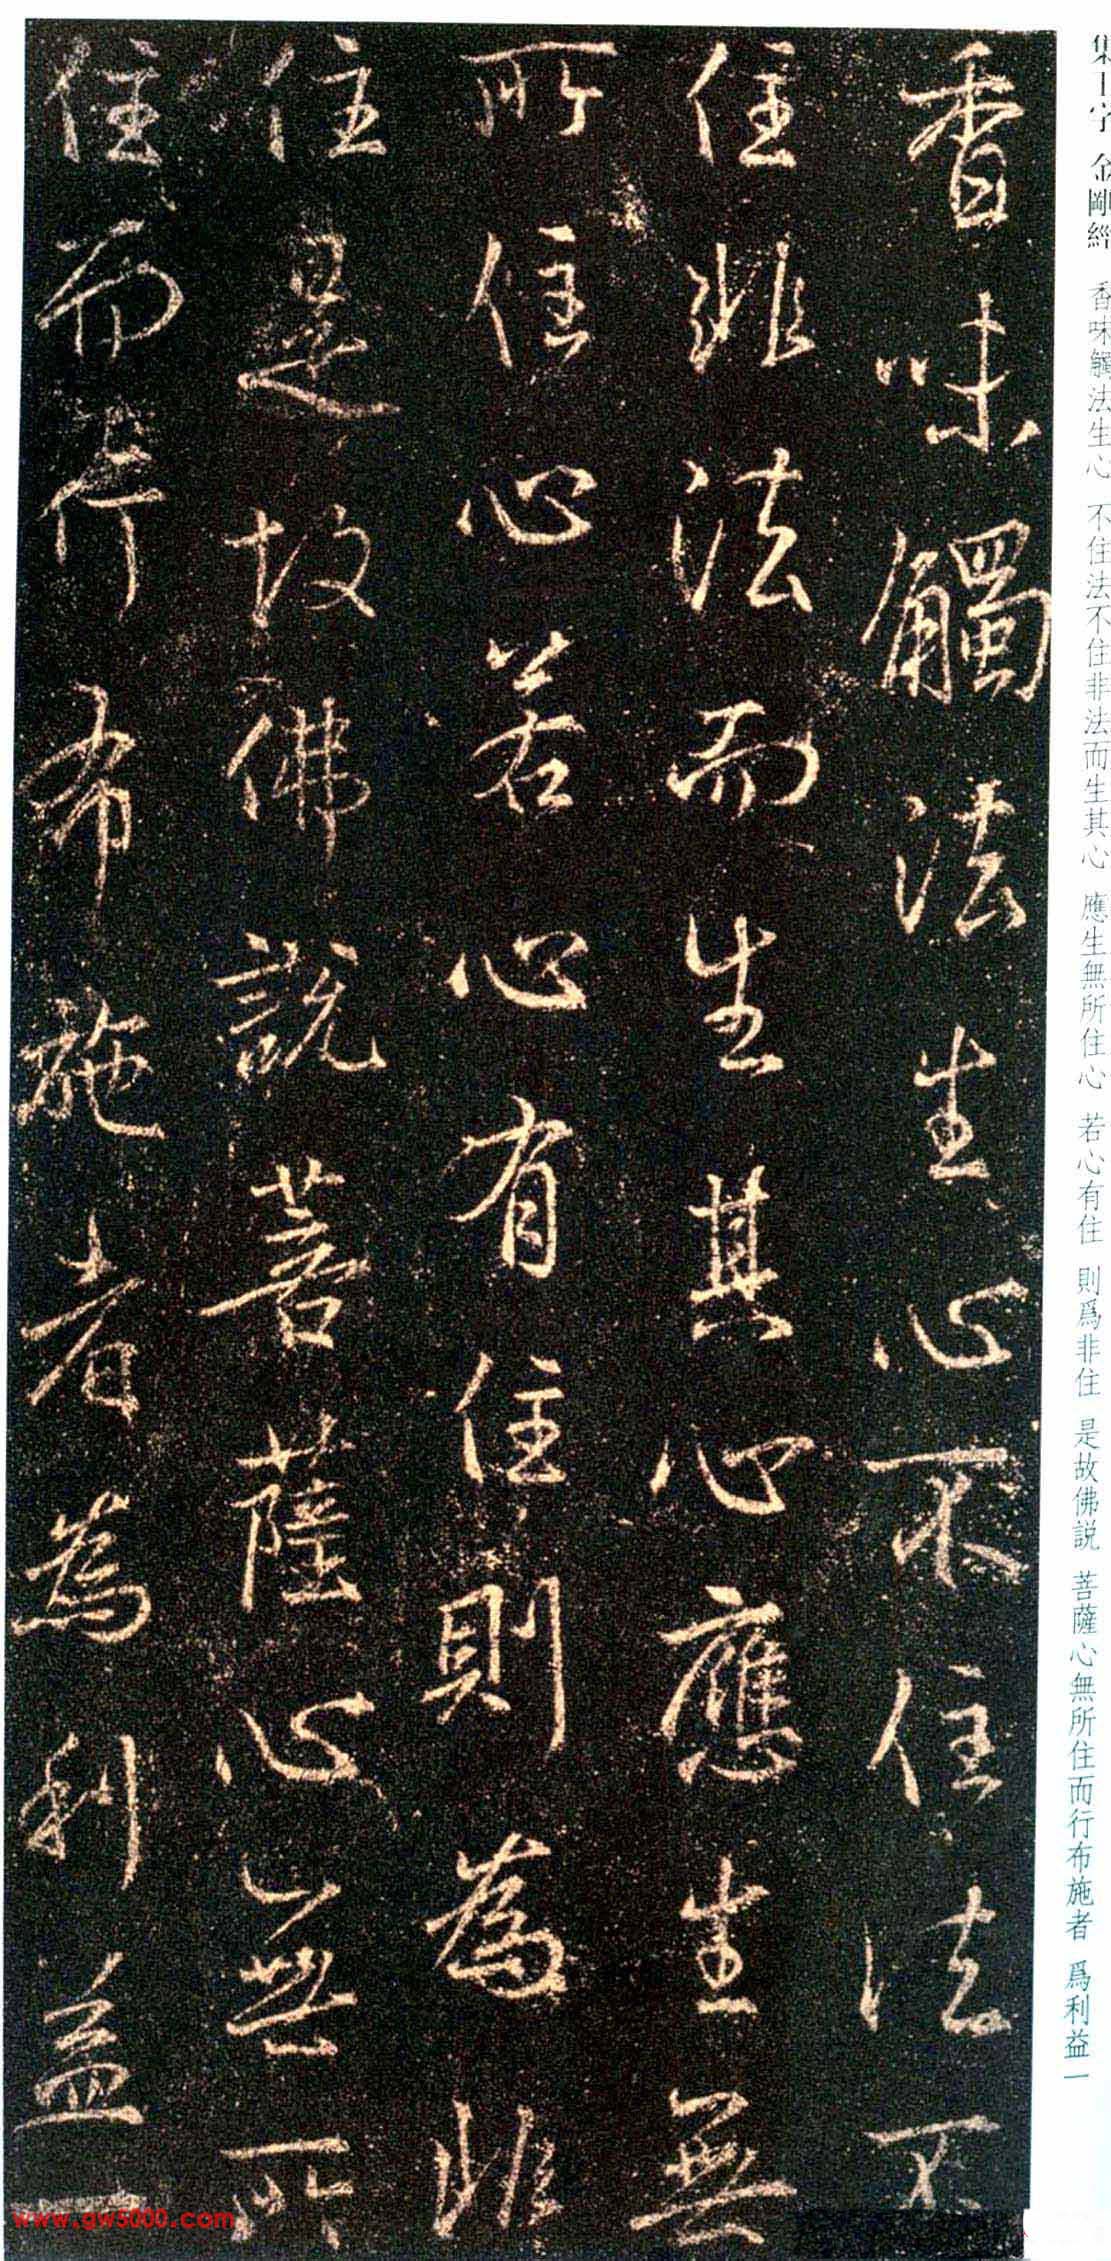 集王字 金剛經 香味觸法生心 不住法不住非法而生其心 應生無所住心 若心有住 則爲非住 是故佛説 菩薩心無所住而行布施者 爲利益一
香味觸法生心不住法不
住非法而生其心應生無
所住心若心有住則為非
住是故佛說菩薩心無所
住而行布施者為利益一
www.gw5000.com